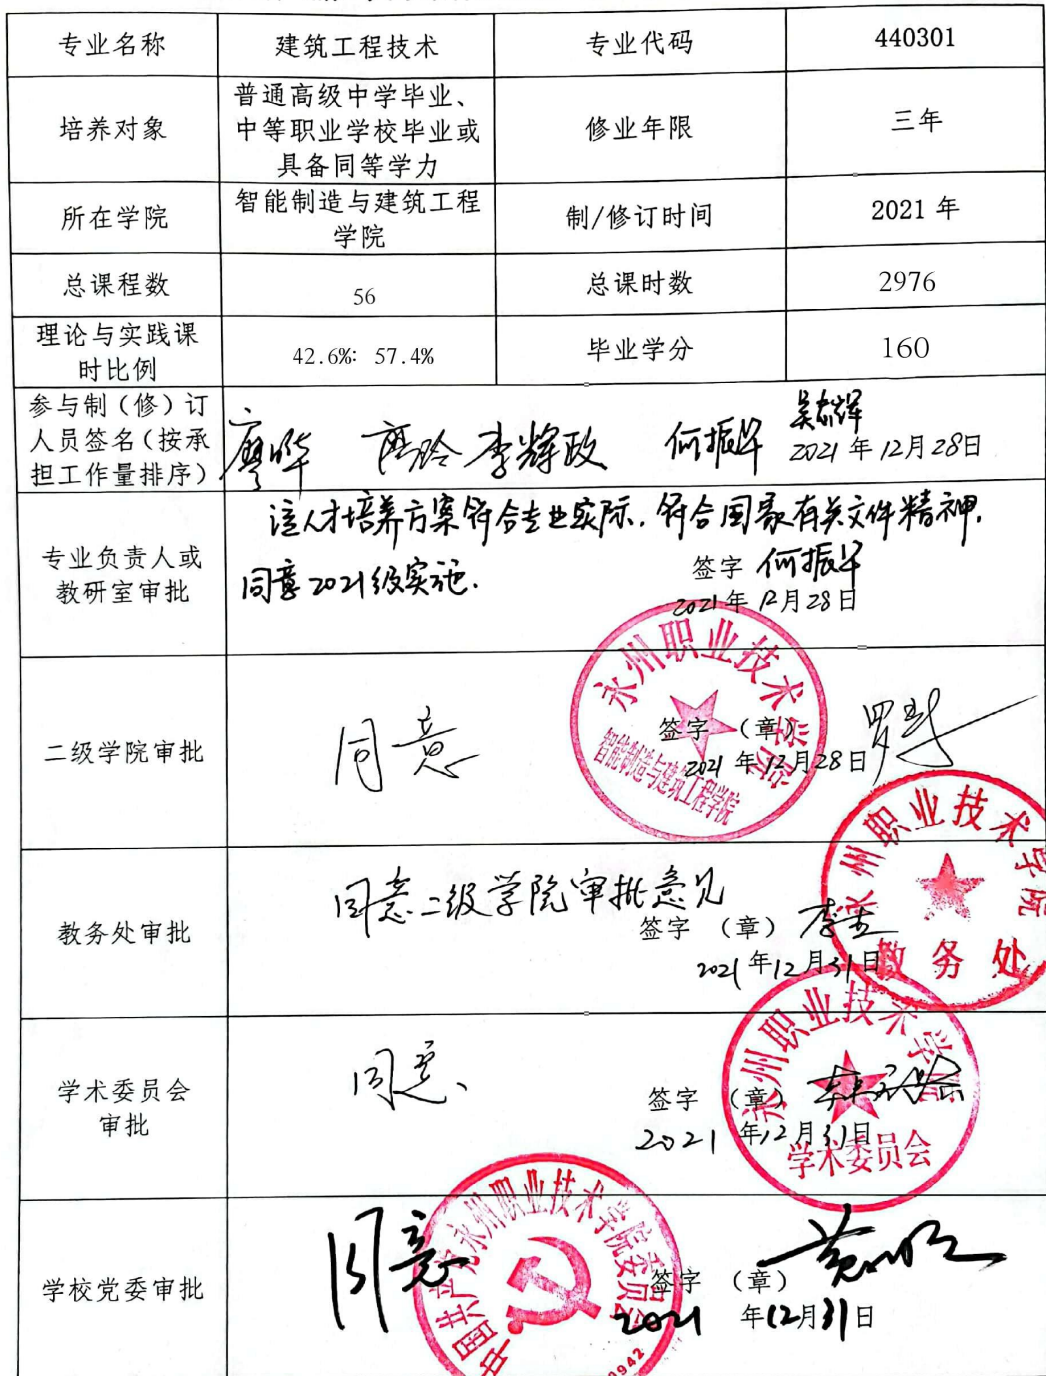 专业名称 建筑工程技术 专业代码 440301
培养对象 普通高级中学毕业、
中等职业学校毕业或
具备同等学力 修业年限 三年
所在学院 智能制造与建筑工程
学院 制/修订时间 2021 年
总课程数 56 总课时数 2976
理论与实践课
时比例 42.6%: 57.4% 毕业学分 160
参与制（修）订
人员签名（按承
担工作量排序）
廖晔 李辉政 何振华
2021 年 12月 28日
专业负责人或
教研室审批
该人才培养方案符合专业实际，符合国家有关文件精神，
同意2021级实施.
签字 何振华
2021年 12月28日
二级学院审批
同意
签字 （章）
2021 年12月28日
永州职业技术学院
智能制造与建筑工程学院
教务处审批
同意二级学院审批意见
签字 （章）
2021 年12月31日
永州职业技术学院
教务处
学术委员会
审批
同意、
签字 （章）
2021 年12月31日
永州职业技术学院
学术委员会
学校党委审批
同意
签字 （章）
2021 年12月31日
中国共产党永州职业技术学院委员会